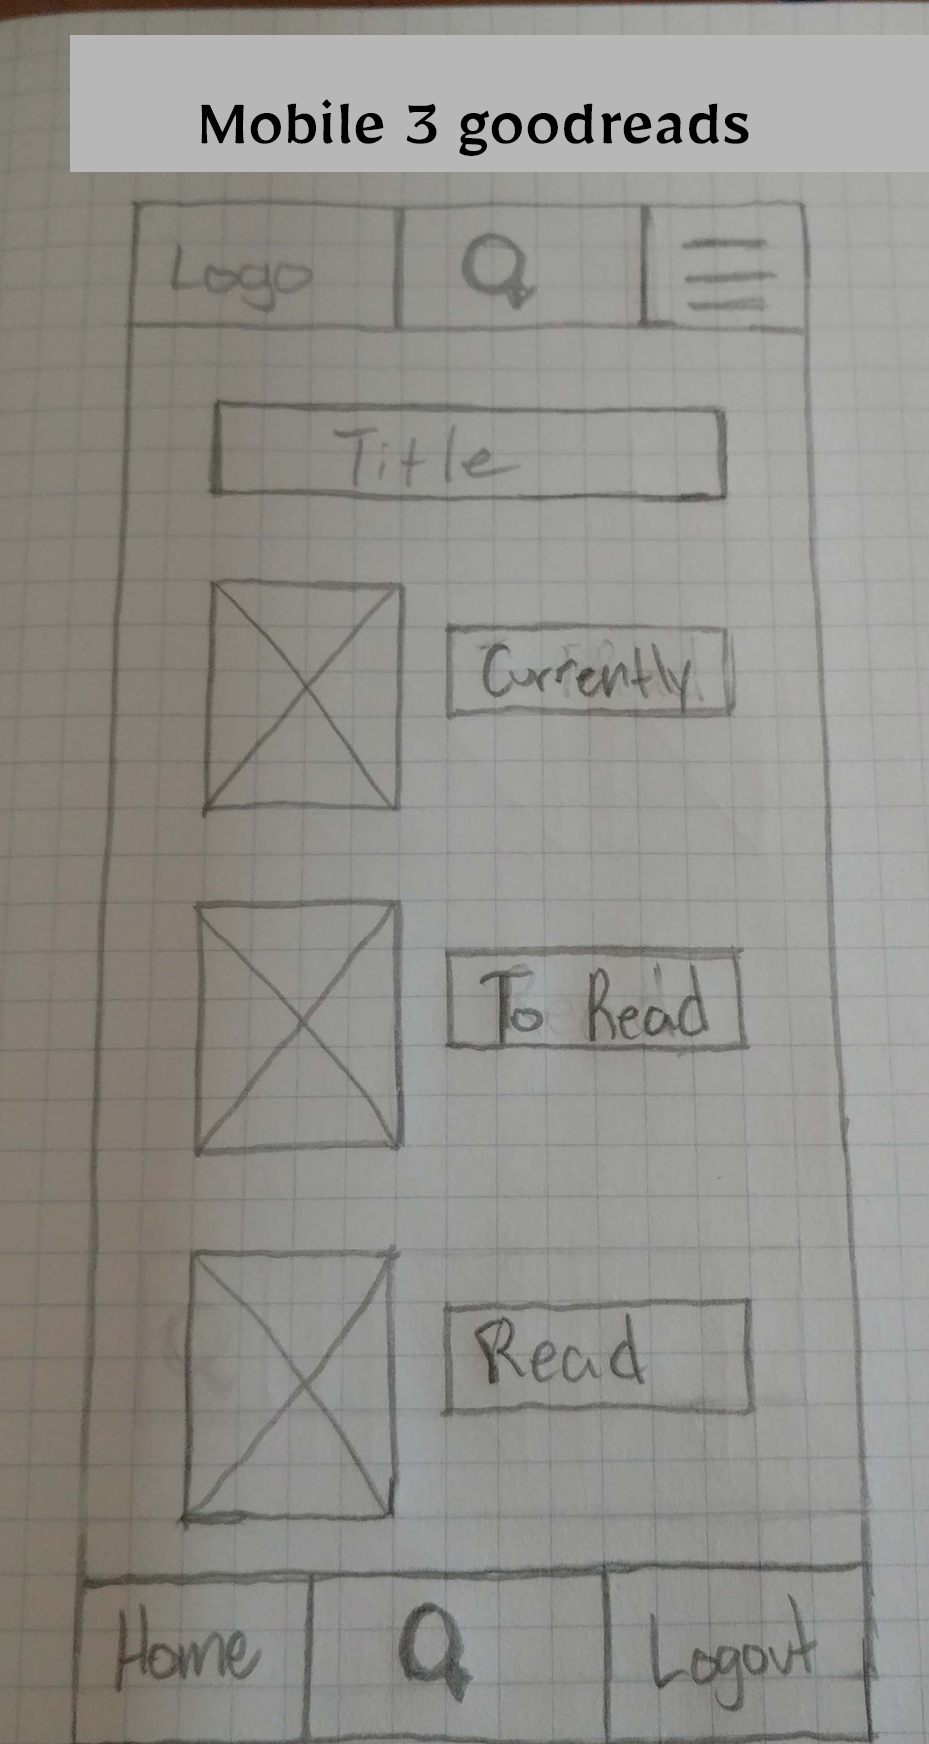 Mobile 3 goodreads
Logo
Title
Currently
To Read
Read
Home
Logout